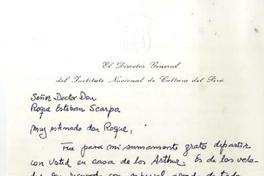 El Director General
del Instituto Nacional de Cultura del Perú
Señor Doctor Don
Roque Esteban Scarpa
Muy estimado don Roque,
Fue para mi sumamente grato departir
con Usted en casa de los Arthur. Es de las vela-